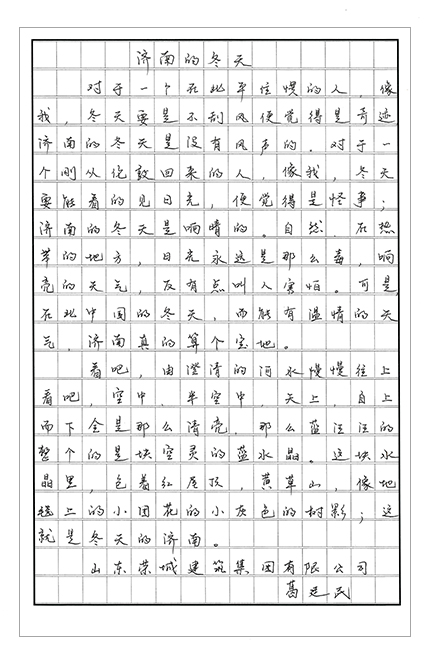 济南的冬天
对于一个在北平住惯的人，像
我，冬天要是不刮风便觉得是奇迹
济南的冬天是没有风声的。对于一
个刚从伦敦回来的人，像我，冬天
要能看的见日光，便觉得是怪事；
济南的冬天是响晴的。自然，在热
带的地方，日光永远是那么毒，响
亮的天气，反有点叫人害怕。可是，
在北中国的冬天，而能有温情的天
气，济南真的算个宝地。
看吧，由澄清的河水慢慢往上
看吧，空中，半空中，天上，自上
而下全是那么清亮，那么蓝汪汪的
整个的是块空灵的蓝水晶。这块水
晶里，包着红屋顶，黄草山，像地
毯上的小团花的小灰色的树影；这
就是冬天的济南。
山东荣城建筑集团有限公司
葛廷民